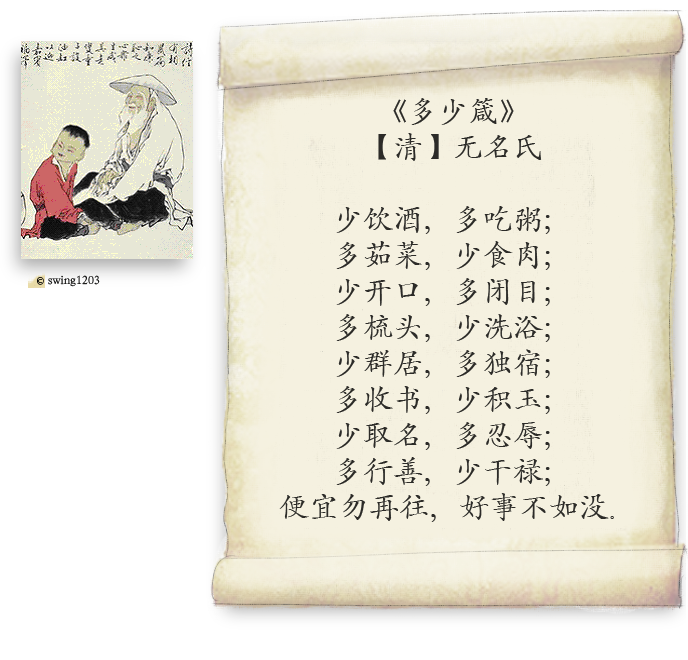 《多少箴》
【清】无名氏
少饮酒，多吃粥；
多茹菜，少食肉；
少开口，多闭目；
多梳头，少洗浴；
少群居，多独宿；
多收书，少积玉；
少取名，多忍辱；
多行善，少干禄；
便宜勿再往，好事不如没.
© swing1203